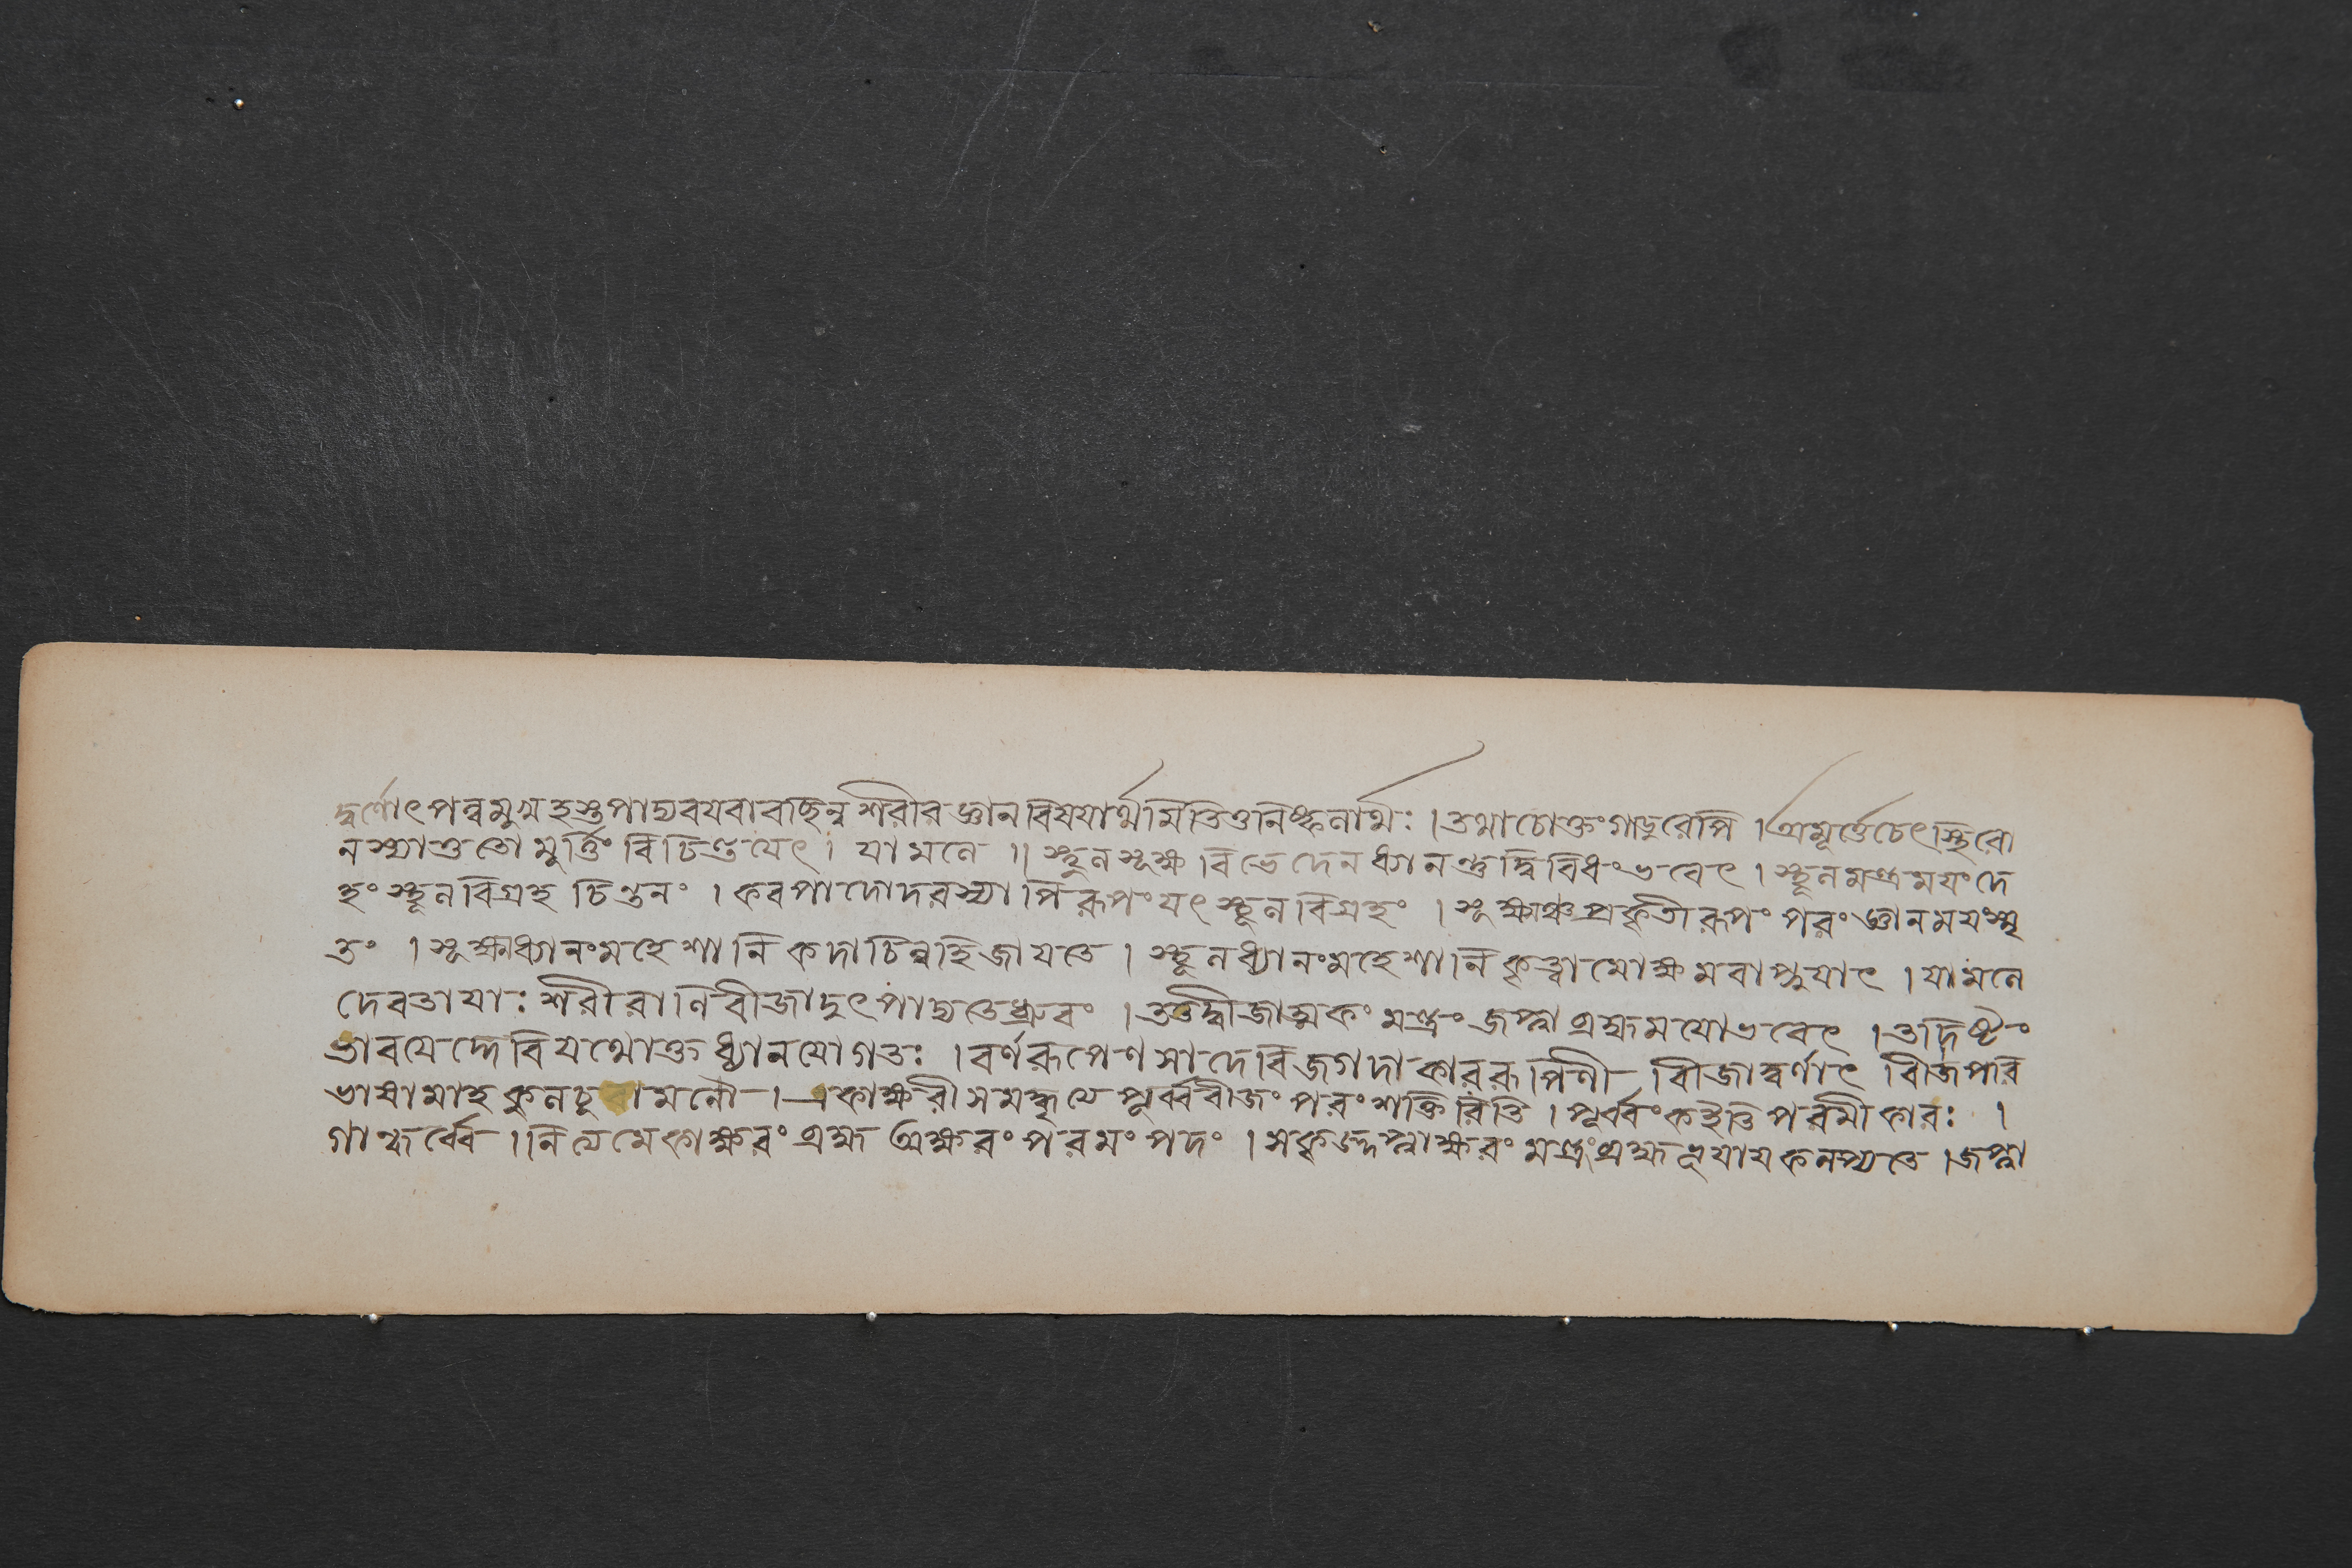 দ্বর্ণোৎপন্নমুখহস্তপাদ্যবয়বাবচ্ছিন্নশরীরজ্ঞানবিষয়ার্থমিতিতুনিষ্কলার্থঃ । তথাচোক্তংগান্ধরেপি । অমূর্ত্তেচেৎস্থিরো
নস্যাত্ততো মুর্ত্তিং বিচিন্তয়েৎ । যামলে ॥ স্থূলসূক্ষ্ম বিভেদেন ধ্যানন্তুদ্বিবিধংভবেৎ । স্থূলমন্ত্রময়ংদে
হং স্থূলবিগ্রহ চিন্তনং । করপাদোদরস্যাপি রূপংযৎ স্থূলবিগ্রহং । সূক্ষ্মঞ্চপ্রকৃতীরূপং পরং জ্ঞানময়ংস্মৃ
তং । সূক্ষ্মধ্যানংমহেশানি কদাচিন্নহিজায়তে । স্থূলধ্যানংমহেশানি কৃত্বামোক্ষমবাপ্নুয়াৎ । যামলে
দেবতায়াঃ শরীরানি বীজাদুৎপদ্যতেধ্রুবং । তত্তদ্বীজাত্মকং মন্ত্রং জপ্ত্বা ব্রহ্মময়োভবেৎ । তদ্দিষ্টং
ভাবয়েদ্দেবি যথোক্ত ধ্যানযোগতঃ । বর্ণরূপেণ সা দেবি জগদাকাররূপিণী বীজাদ্বর্ণাৎ বীজপরি
ভাষামাহ কুলচুড়ামনৌ । একাক্ষরীসমক্ষৃথে পূর্ব্ববীজং পরংশক্তিরিতি । পূর্ব্বং কইতি পরমীকারঃ ।
গান্ধর্ব্বে । নিত্যমেকাক্ষরং ব্রহ্ম অক্ষরং পরমং পদং । সকৃজ্জপ্ত্বাক্ষরং মন্ত্রং ব্রহ্মভূয়ায়কল্প্যতে । জপ্ত্বা